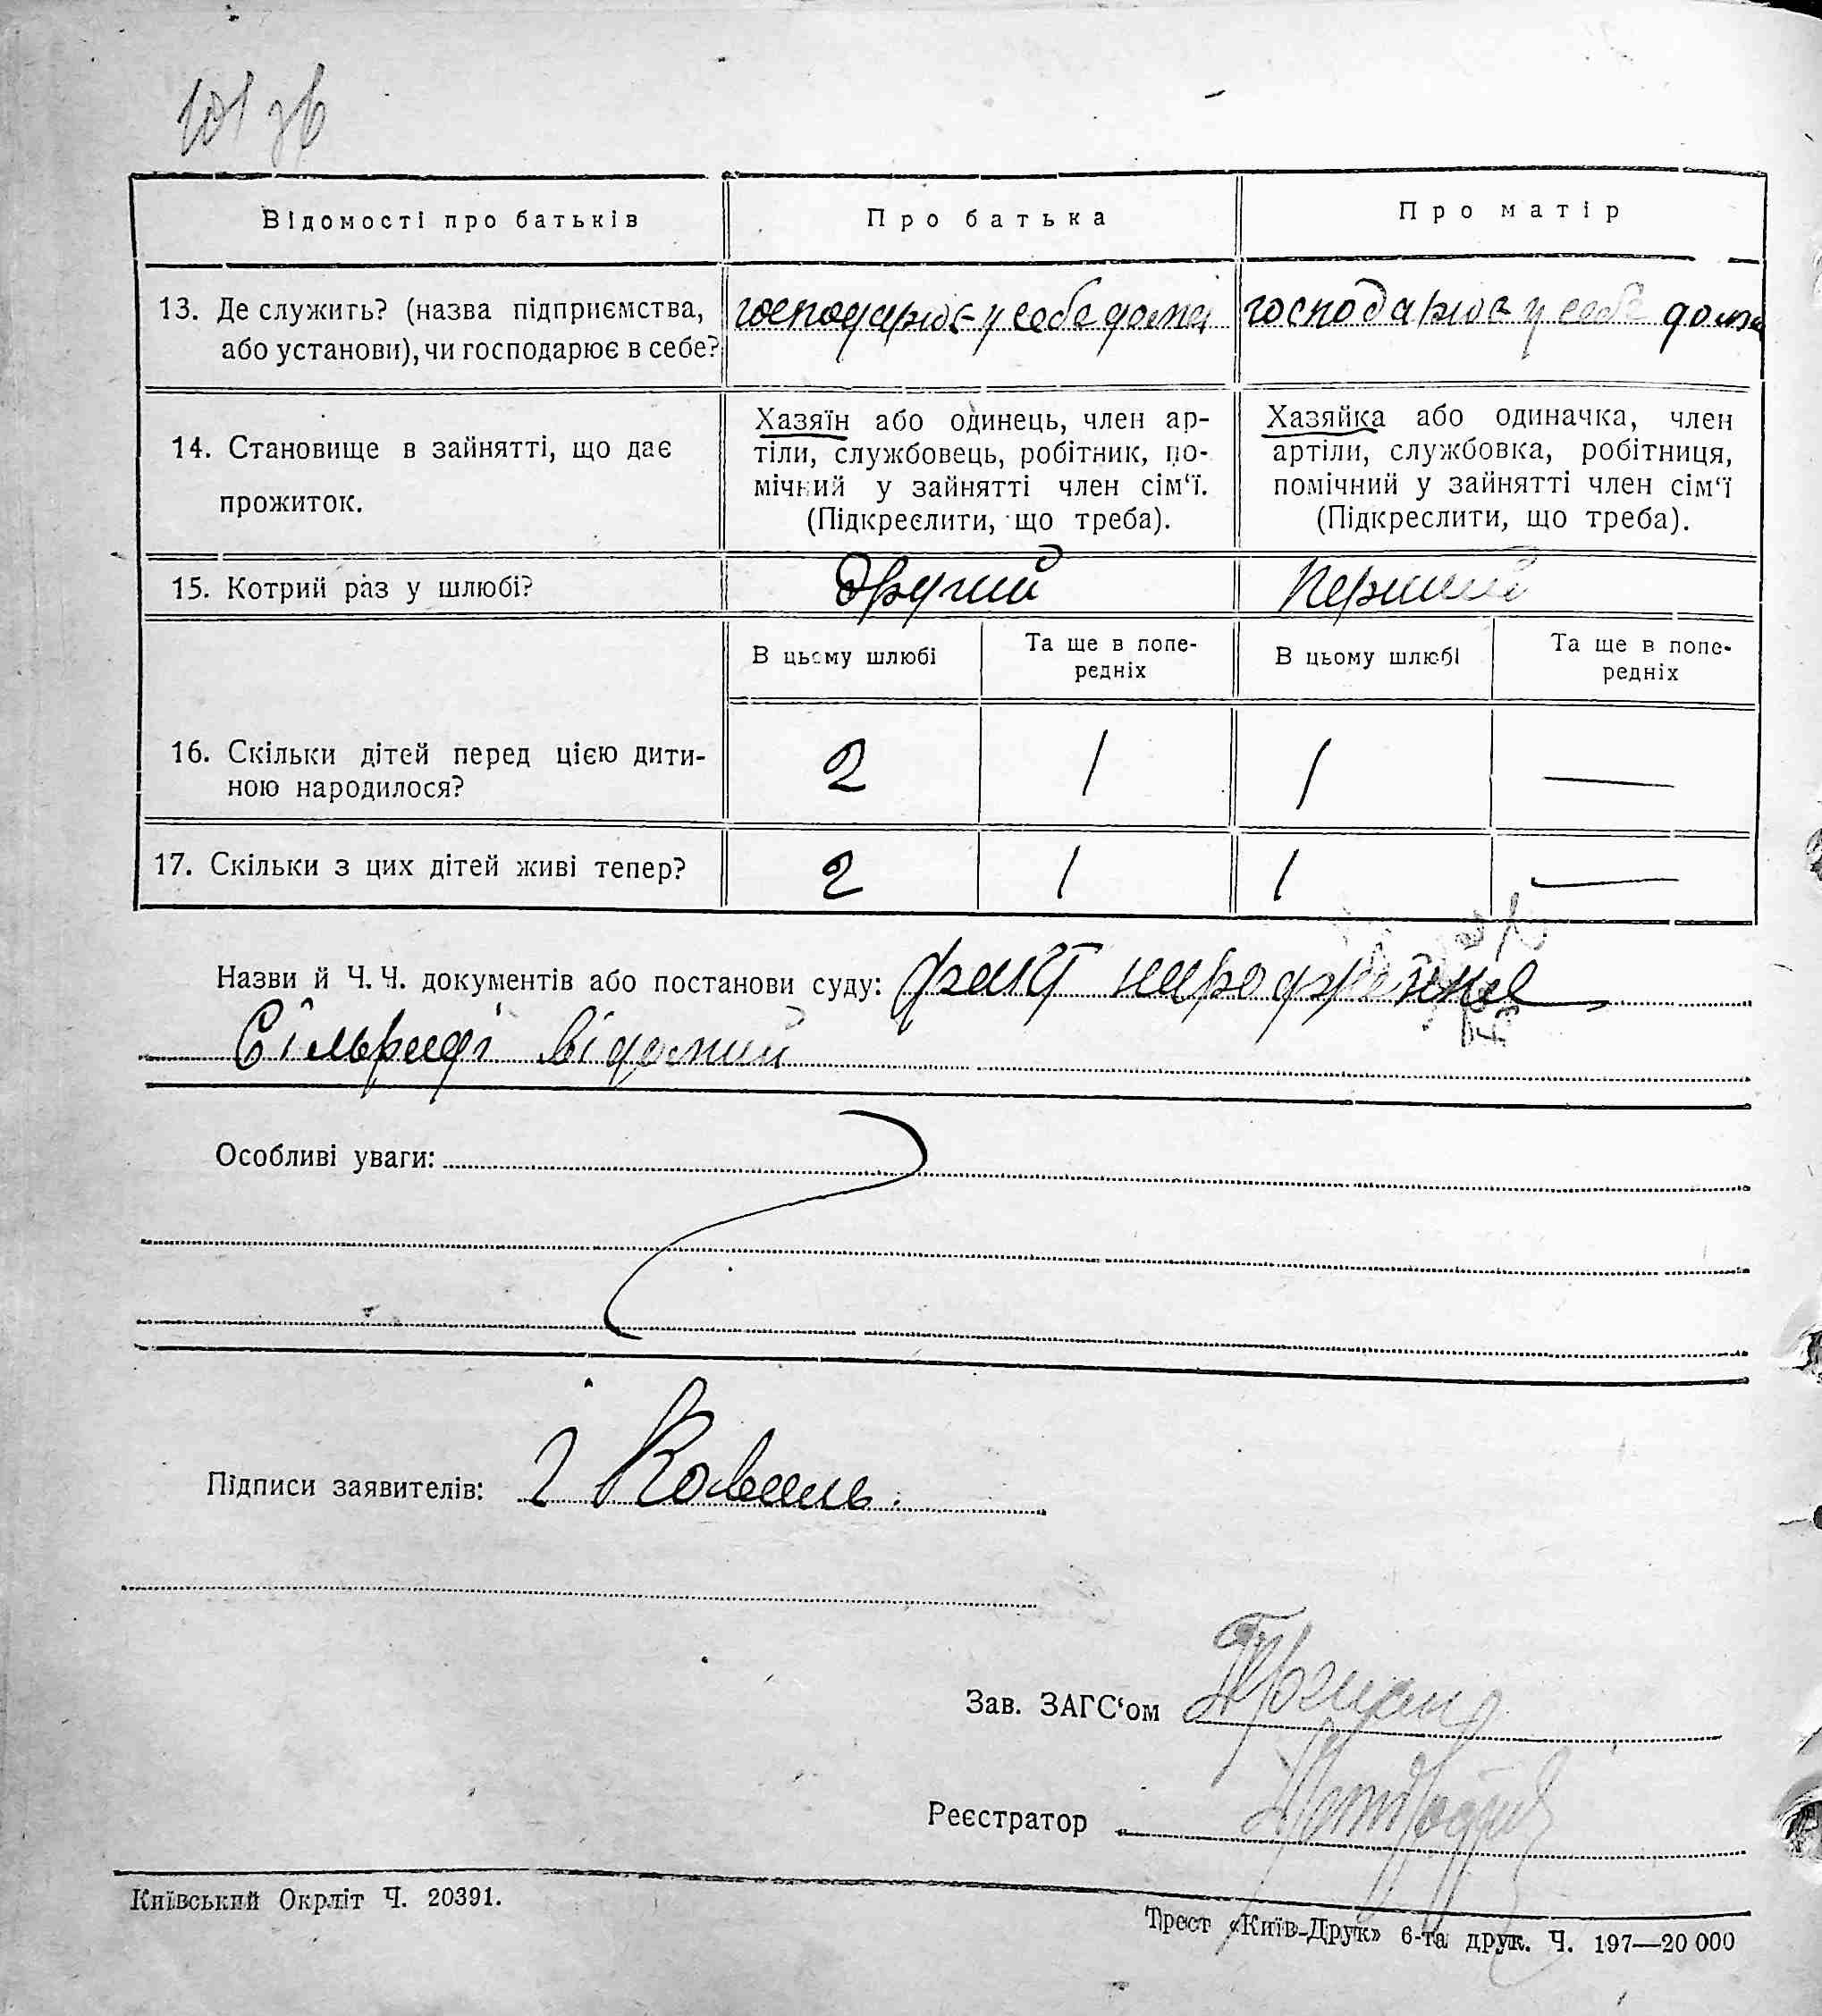 101 зв
Відомості про батьків
Про батька
Про матір
13. Де служить? (назва підприємства,
або установи), чи господарює в себе?
господарює у себе дома
господарює у себе дома
14. Становище в зайнятті, що дає
прожиток.
Хазяїн або одинець, член ар-
тіли, службовець, робітник, по-
мічний у зайнятті член сім‘ї.
(Підкреслити, що треба).
Хазяйка або одиначка, член
артіли, службовка, робітниця,
помічний у зайнятті член сім‘ї
(Підкреслити, що треба).
15. Котрий раз у шлюбі?
Другий
Перший
В цьому шлюбі
Та ще в попе-
редніх
В цьому шлюбі
Та ще в попе-
редніх
16. Скільки дітей перед цією дити-
ною народилося?
2 1 1 —
17. Скільки з цих дітей живі тепер?
2 1 1 —
Назви й Ч. Ч. документів або постанови суду: факт народження
Сільраді відомий
Особливі уваги:
Підписи заявителів: І Коваль.
Зав. ЗАГС‘ом
Реєстратор
Київський Окрліт Ч. 20391.
Трест «Київ-Друк» 6-та друк. Ч. 197—20 000